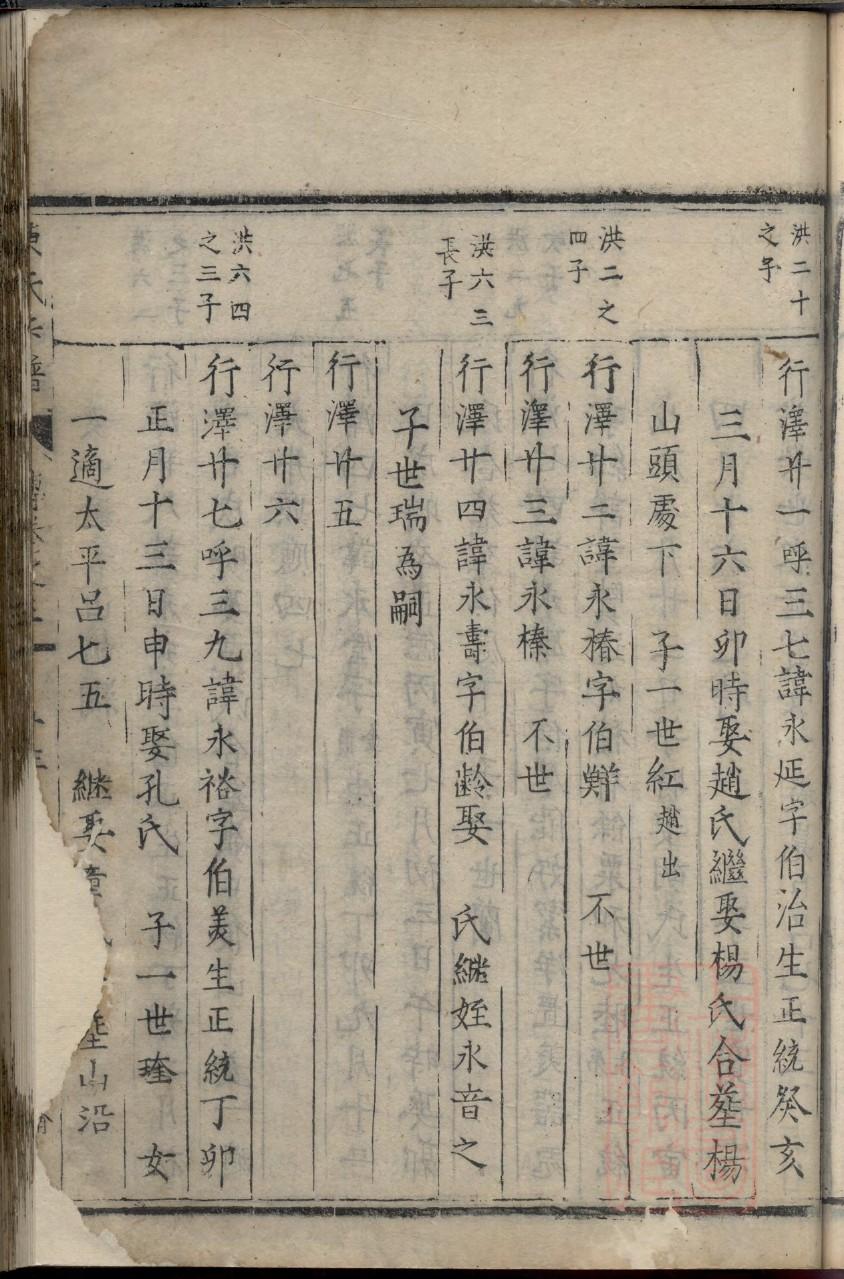 洪二十
之子
行澤廿一呼三七諱永延字伯治生正統癸亥
三月十六日卯時娶趙氏繼娶楊氏合塟楊
山頭處下 子一世紅趙出
洪二之
四子
行澤廿二諱永椿字伯鮮 不世
行澤廿三諱永榛 不世
洪六三
長子
行澤廿四諱永壽字伯齡娶 氏継姪永音之
子世瑞為嗣
行澤廿五
行澤廿六
洪六四
之三子
行澤廿七呼三九諱永裕字伯羙生正統丁卯
正月十三日申時娶孔氏 子一世琒 女
一適太平呂七五 継娶 塟山沿
氏 譜